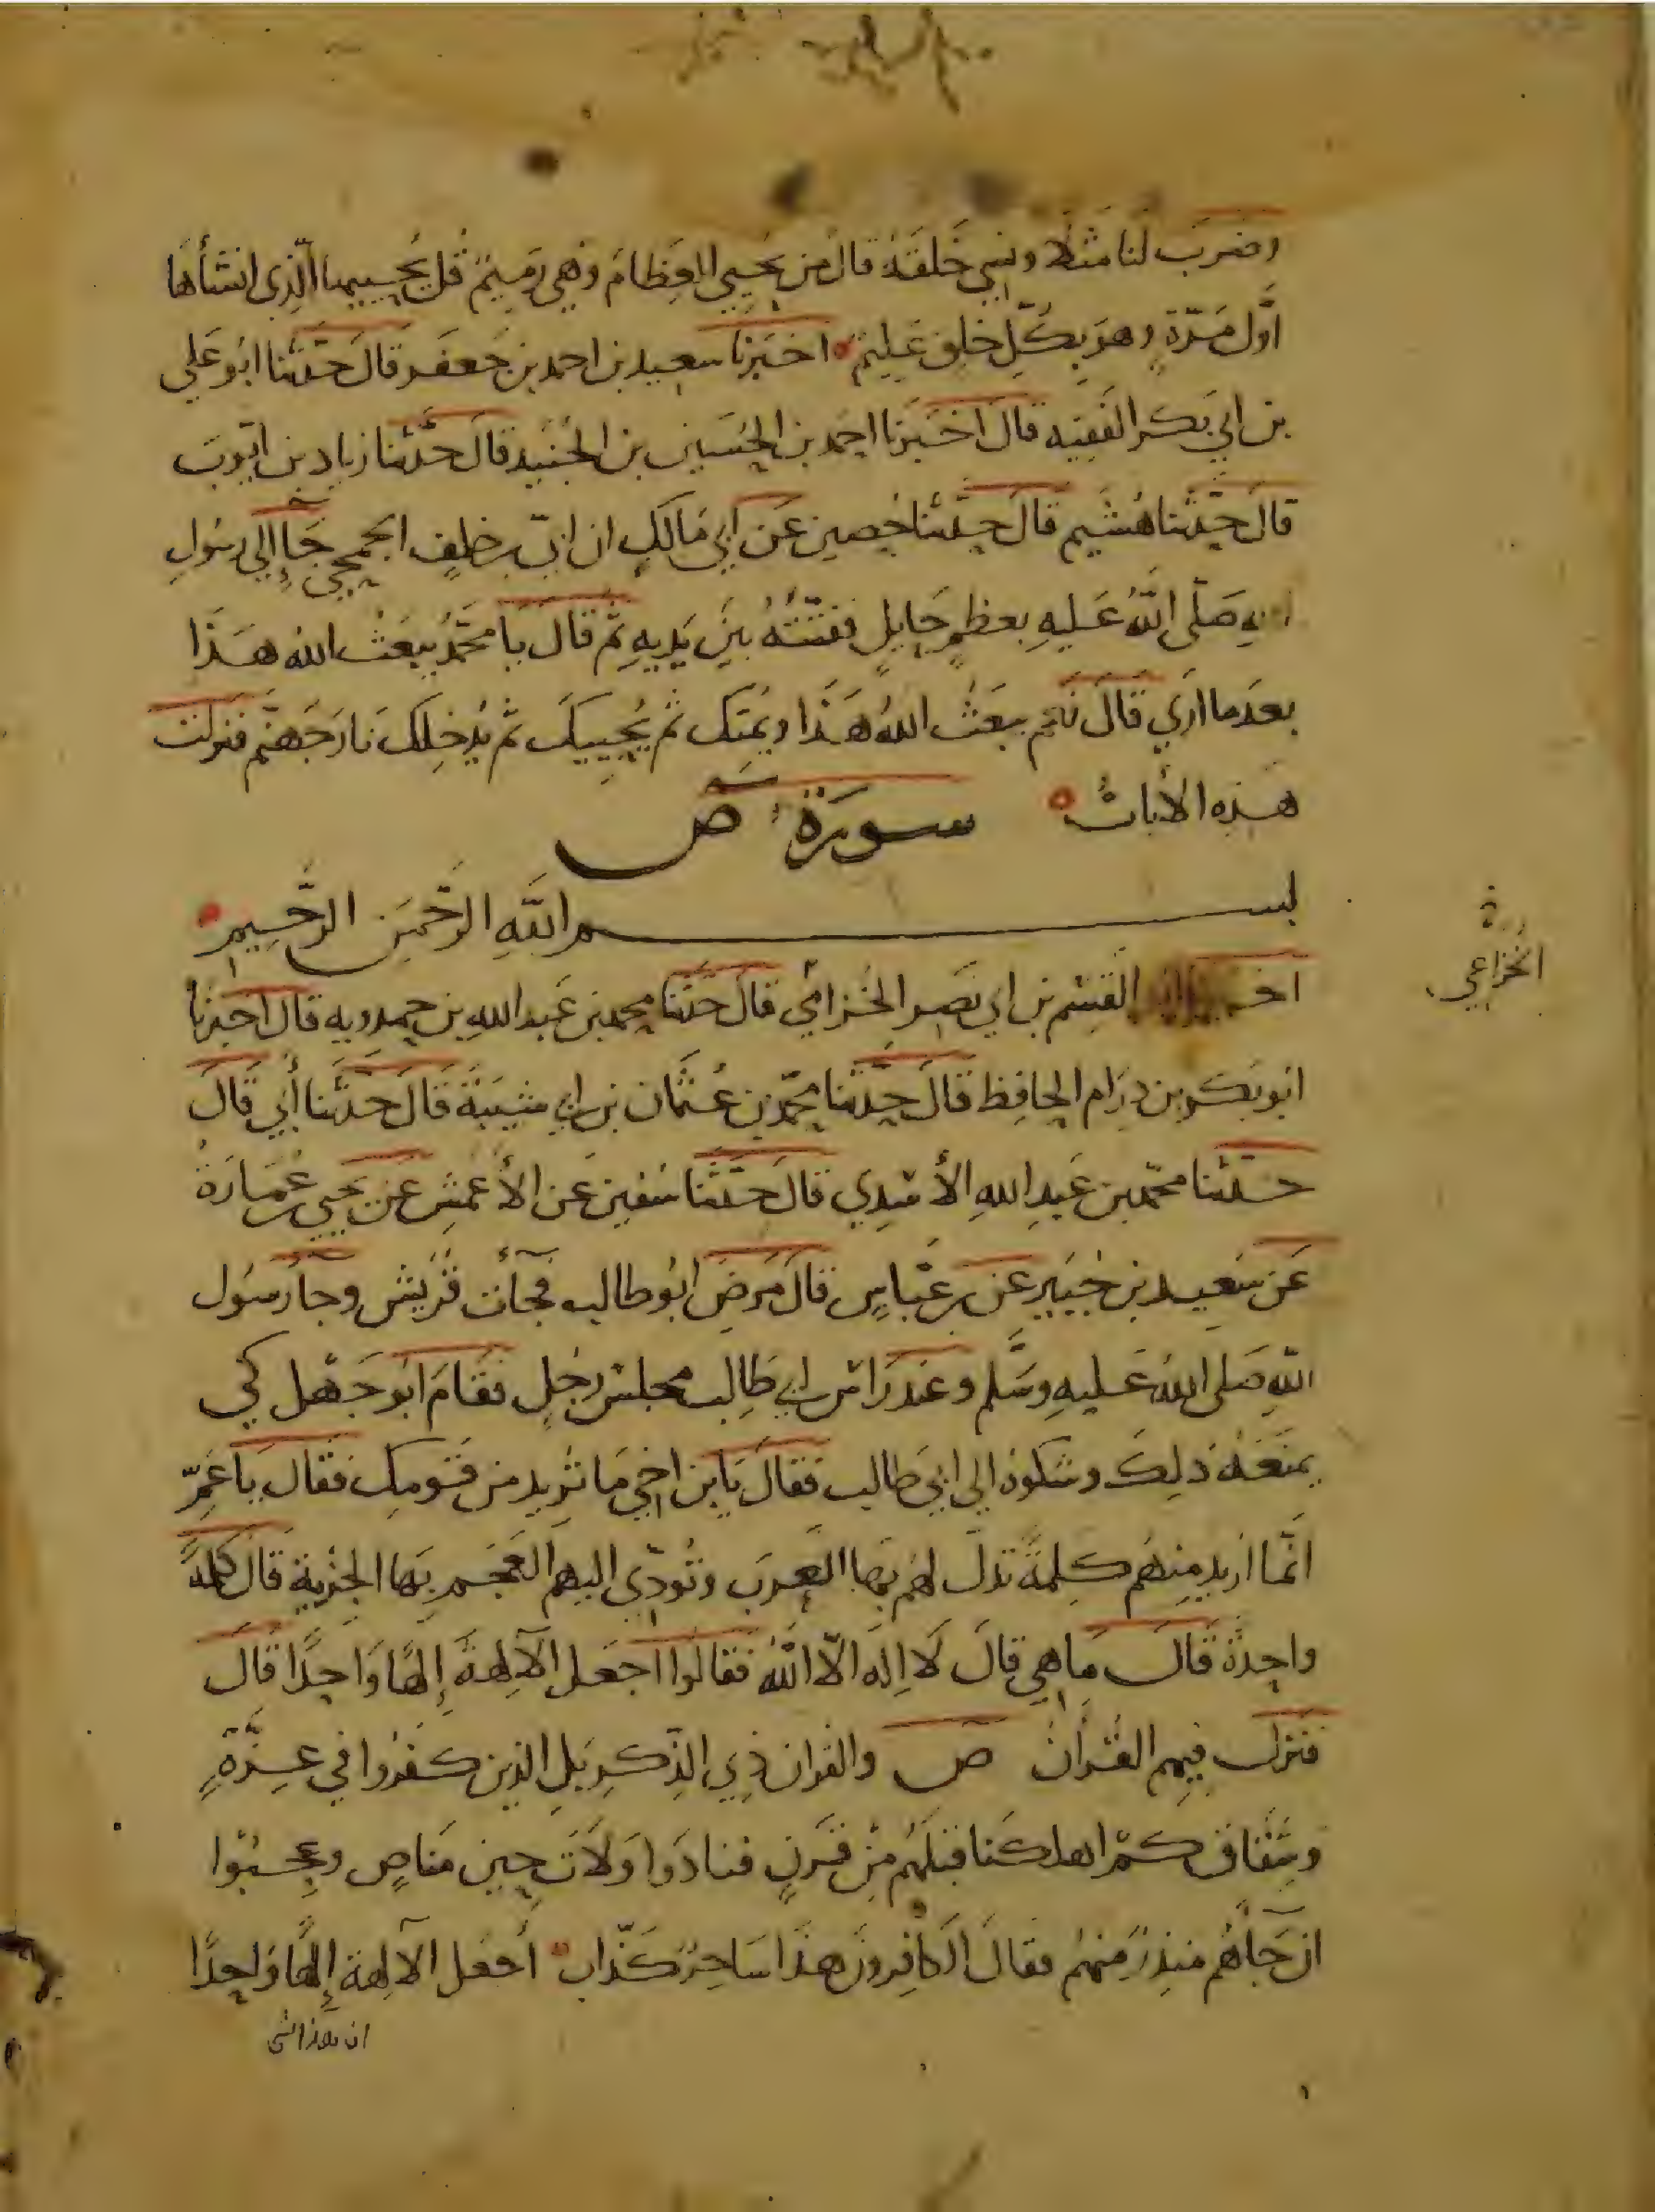 وضرب لنا مثلا ونسي خلقه قال من يحيي العظام وهي رميم قل يحييها الذي انشأها
اوّل مرّة وهو بكلّ خلق عليم اخبرنا سعيد بن احمد بن جعفر قال حدّثنا ابو علي
بن ابي بكر الفقيه قال اخبرنا احمد بن الحسين بن الجنيد قال حدّثنا زياد بن ايّوب
قال حدّثنا هشيم قال حدّثنا حصين عن ابي مالك ان ابيّ بن خلف الجمحي جآ إلى رسول
صلّى اللّه عليه بعظم حايل ففتّته بين يديه ثم قال يا محمّد يبعث الله هذا
بعد ما اري قال نعم يبعث الله هذا ويمتك ثم يحييك ثم يدخلك نار جهنّم فنزلت
هذه الأيات سورة ص
بسم اللّه الرّحمن الرّحيم
القسم بن ابي نصر الخزامي قال حدّثنا محمد بن عبد الله بن حمدويه قال اخبرنا
ابو بكر بن درام الحافظ قال حدّثنا محمّد بن عثمان بن ابي شيبة قال حدّثنا أبي قال
حدّثنا محمّد بن عبد الله الأسدي قال حدّثنا سفين عن الأعمش عن يحيى بن عمارة
عن سعيد بن جبير عن بن عبّاس قال مرض ابو طالب فجآت قريش وجآ رسول
اللّه صلى الله عليه وسلّم وعند راس ابي طالب مجلس رجل فقام ابو جهل كي
يمنعه ذلك وشكوه الي ابي طالب فقال يابن اخي ما تريد من قومك فقال يا عمّ
انّما اريد منهم كلمة تذلّ لهم بها العرب وتودّي اليهم العجم بها الجزية قال كلمة
واحدة قال ما هي قال لا اله الّا اللّه فقالوا اجعل الآلهة إلها واحدا قال
فنزل فيهم القرآن ص والقران ذي الذّكر بل الذين كفروا في عزّة
وشقاق كم اهلكنا قبلهم من قرن فنادوا ولات حين مناص وعجبوا
ان جآهم منذر منهم فقال الكافرون هذا ساحر كذّاب أجعل الآلهة إلها واحدا
ان هذا لشى
الخزاعي